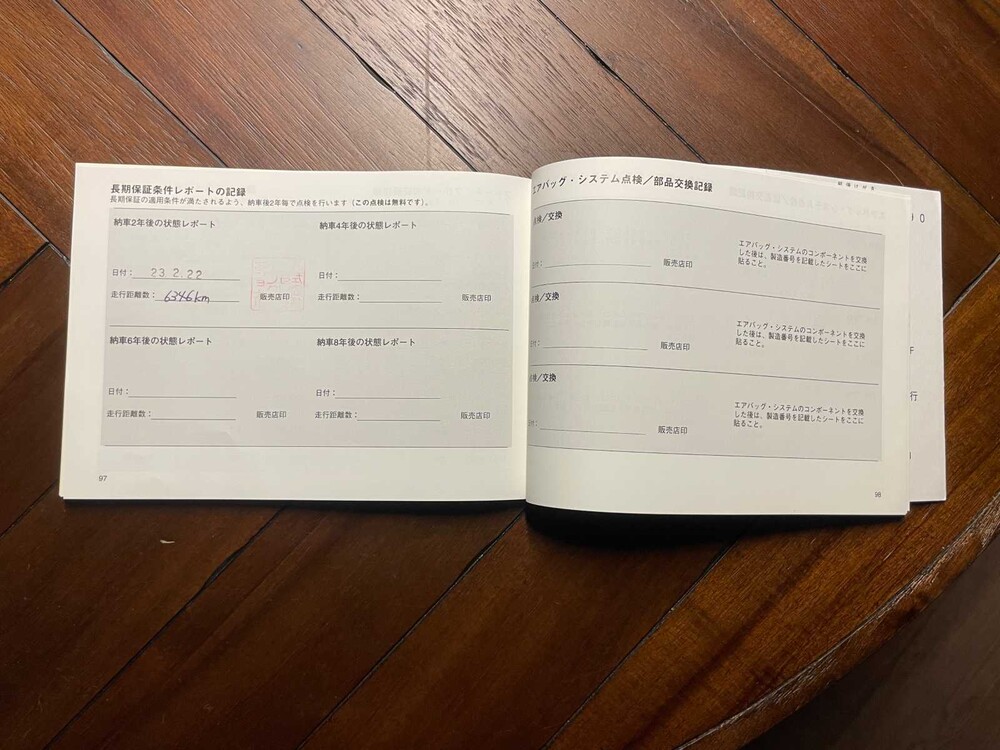 長期保証条件レポートの記録
長期保証の適用条件が満たされるよう、納車後2年毎で点検を行います（この点検は無料です）。
納車2年後の状態レポート
日付： 23.2.22
走行距離数： 6346km
販売店印
納車4年後の状態レポート
日付：
走行距離数：
販売店印
納車6年後の状態レポート
日付：
走行距離数：
販売店印
納車8年後の状態レポート
日付：
走行距離数：
販売店印
97
エアバッグ・システム点検／部品交換記録
点検／交換
日付：
販売店印
エアバッグ・システムのコンポーネントを交換
した後は、製造番号を記載したシートをここに
貼ること。
点検／交換
日付：
販売店印
エアバッグ・システムのコンポーネントを交換
した後は、製造番号を記載したシートをここに
貼ること。
点検／交換
日付：
販売店印
エアバッグ・システムのコンポーネントを交換
した後は、製造番号を記載したシートをここに
貼ること。
98
行